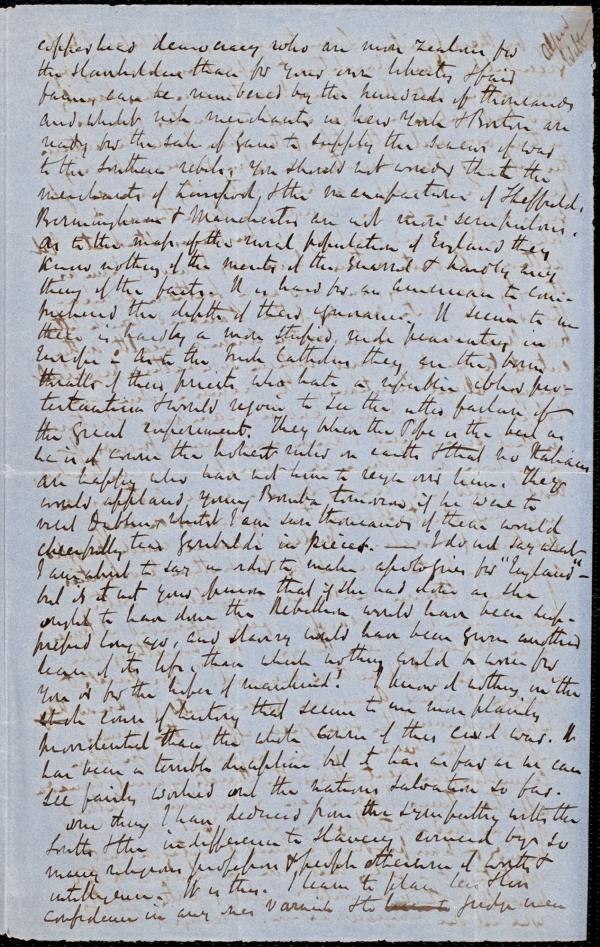 copperhead democracy who are more zealous for
the slaveholders than for your own liberties & fair
fame, can be numbered by the hundreds of thousands
and whilst rich merchants in New York & Boston are
ready for the sake of gain to supply the sinews of war
to the Southern rebels, you should not wonder that the
merchants of Liverpool, & the manufacturers of Sheffield,
Birmingham & Manchester are not more scrupulous.
As to the mass of the rural population of England they
know nothing of the merits of the quarrel & hardly any
thing of the facts. It is hard for an American to com-
prehend the depth of their ignorance. It seems to me
there is hardly a more stupid, rude peasantry in
Europe. As to the Irish Catholics they are the born
thralls of their priests, who hate a republic, abhor pro-
testantism & would rejoice to see the utter failure of
the great experiment. They believe the Pope is the best as
he is of course the holiest ruler on earth & that no Italians
are happy who have not him to reign over them. They
would applaud young Bomba tomorrow if he were to
visit Dublin, whilst I am sure thousands of them would
cheerfully tear Garibaldi in pieces. — I do not say what
I am about to say in order to make apologies for "England" –
but is it not your opinion that if she had done as she
ought to have done the Rebellion would have been sup-
pressed long ago, and slavery would have been given another
lease of its life, than which nothing could be worse for
you or for the hopes of mankind? I know of nothing in the
whole course of history that seems to me more plainly
providential than the whole course of this civil war. It
has been a terrible discipline but it has as far as we can
see fairly worked out the nations salvation so far.
One thing I have deduced from the sympathy with the
South & the indifference to slavery, evinced by so
many religious professors & people otherwise of worth &
intelligence. It is this. I learn to place less
confidence in any ones & to judge men